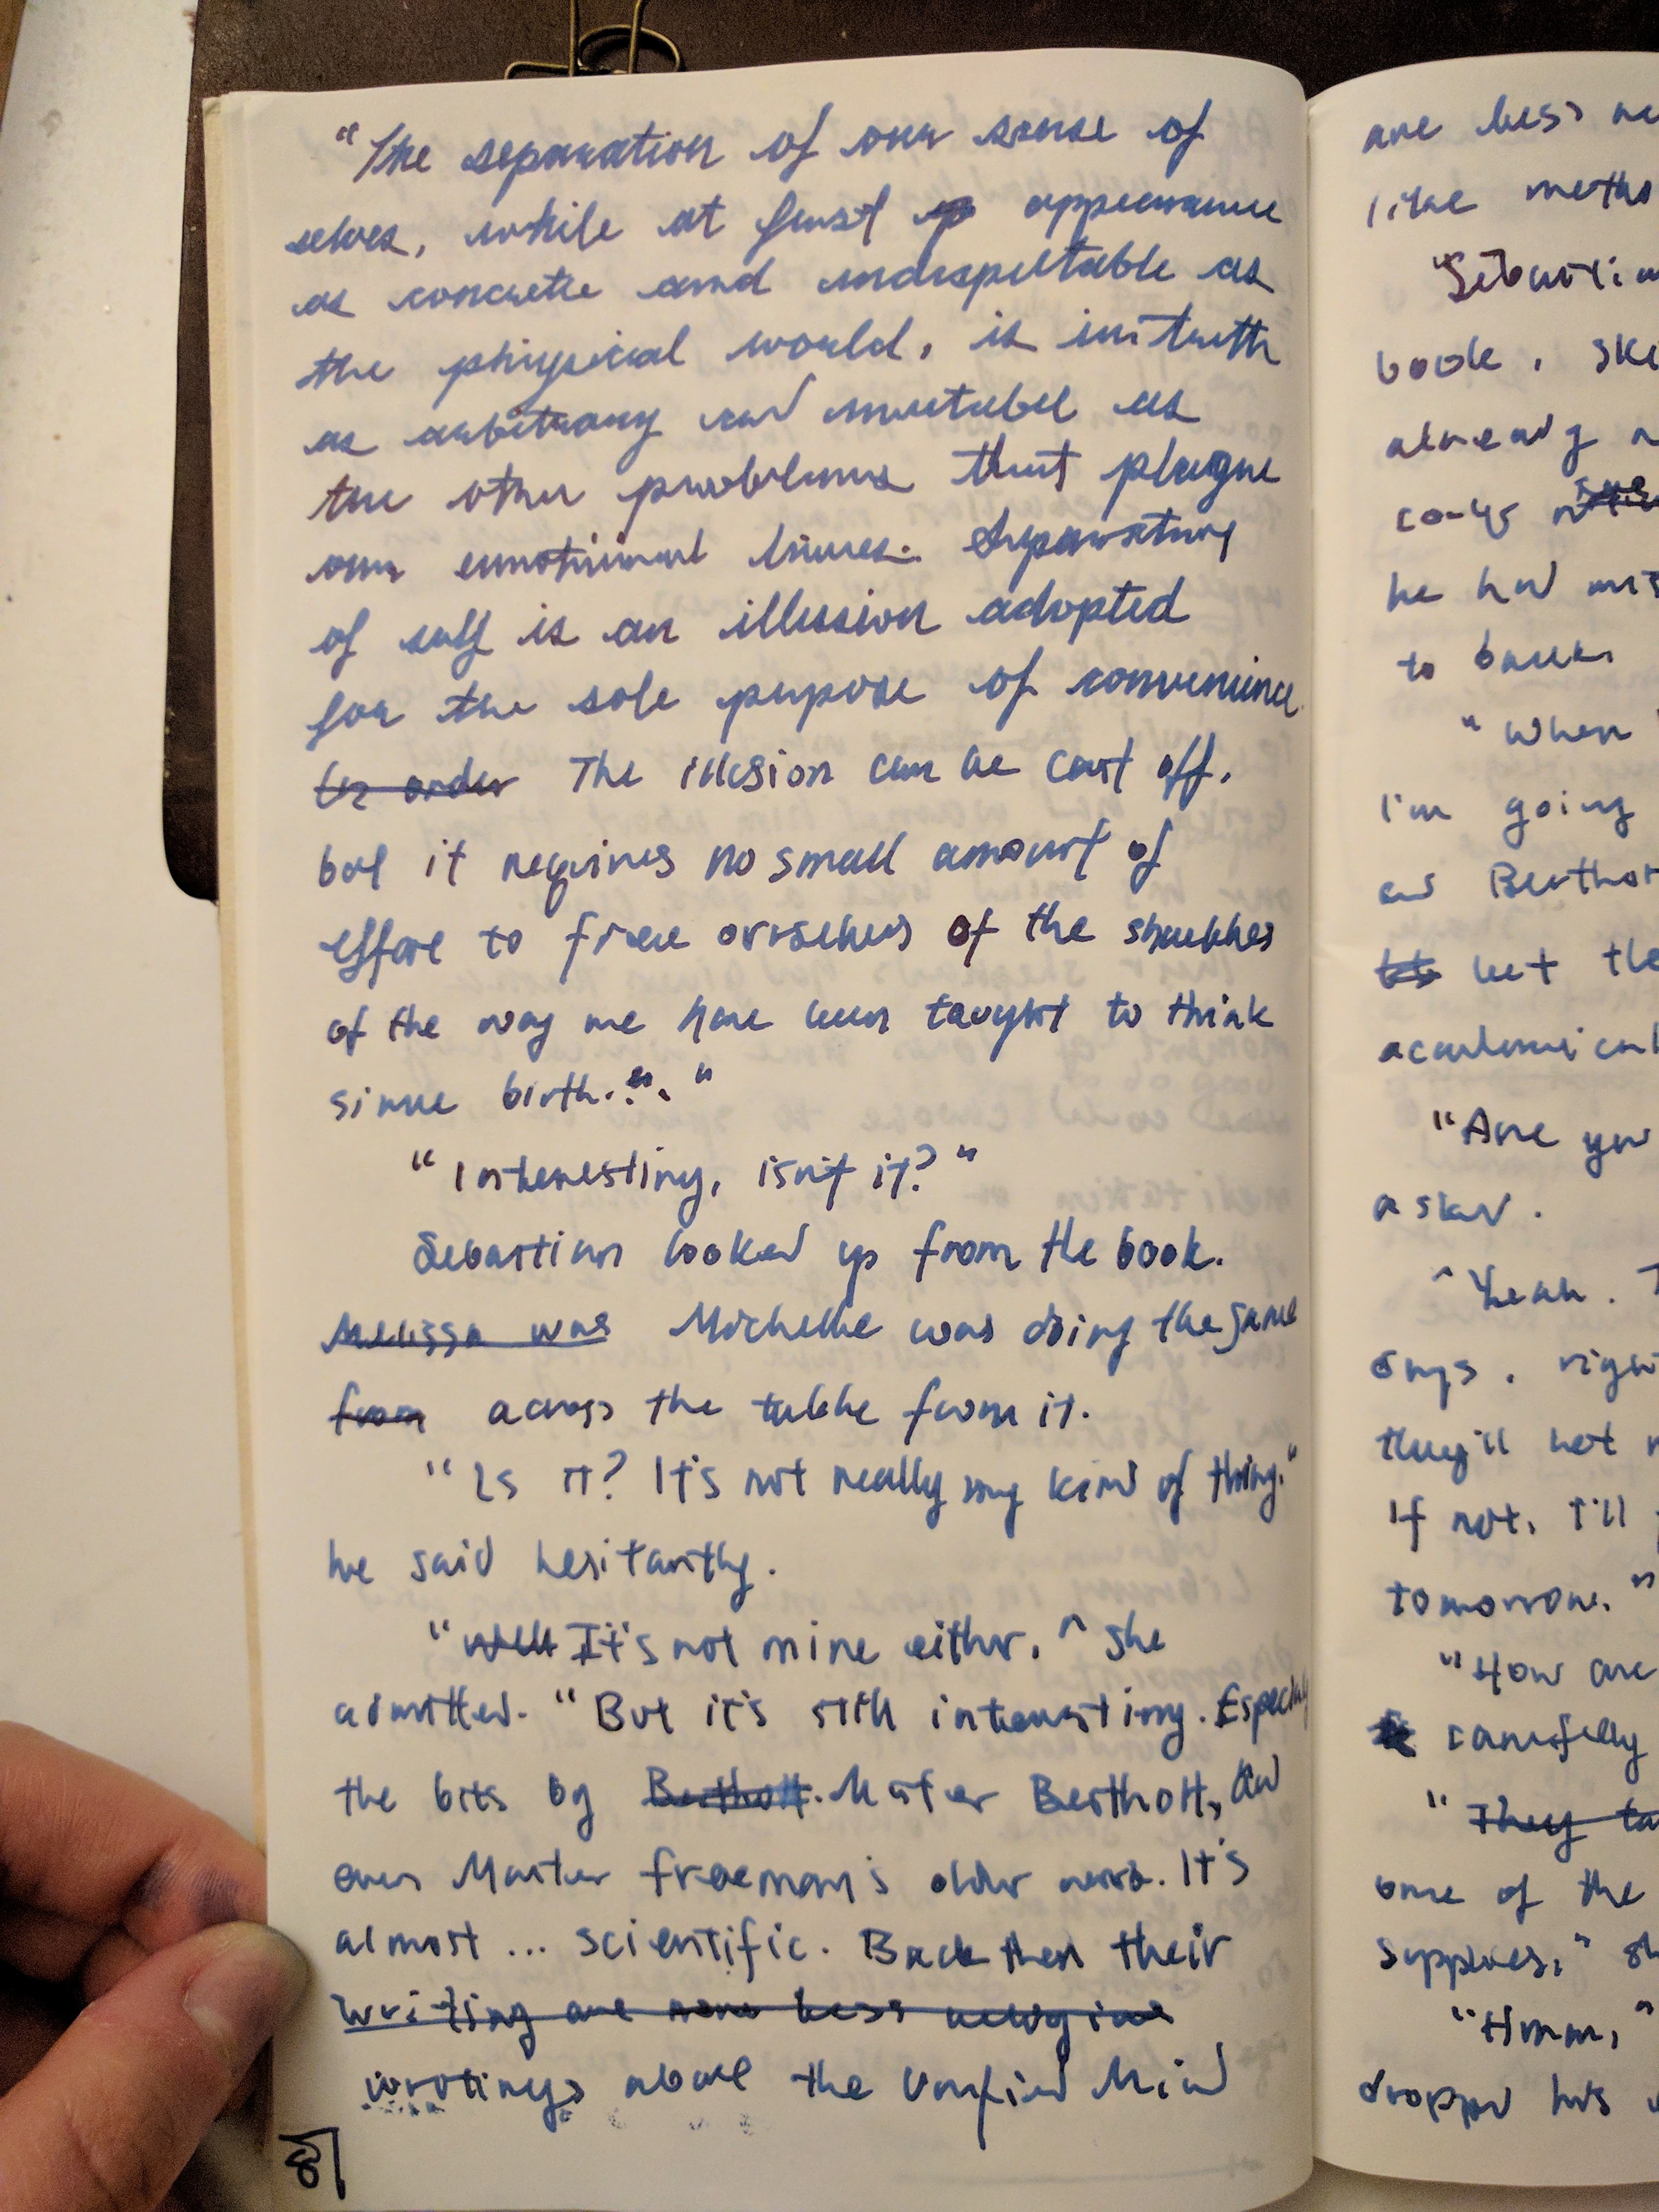 "The separation of our sense of
selves, while at first appearance
as concrete and indisputable as
the physical world, is in truth
as arbitrary and mutabel as
the other problems that plague
our emotional lives. Separating
of self is an illusion adopted
for the sole purpose of convenience.
Or order The illusion can be cast off,
but it requires no small amount of
effort to free ourselves of the shackles
of the way we have been taught to think
since birth..."
"Interesting, isn't it?"
Sebastian looked up from the book.
Melissa was Michelle was doing the same
from across the table from it.
"Is it? It's not really my kind of thing."
he said hesitantly.
"Well It's not mine either," she
admitted. "But it's still interesting. Especially
the bits by Berthott. Mister Berthott, and
even Master Freeman's older work. It's
almost... scientific. Back then their
writing are more less religious
writings about the Unified Mind
81
are less re
like metho
"Sebastia
book, ske
already
he had mis
to back
"When
I'm going
and Berthot
let the
academical
"Are you
asked.
"Yeah. T
days, right
they'll not
If not, I'll
tomorrow."
"How are
carefully
"They ta
one of the
supplies," sh
"Hmm,"
dropped his